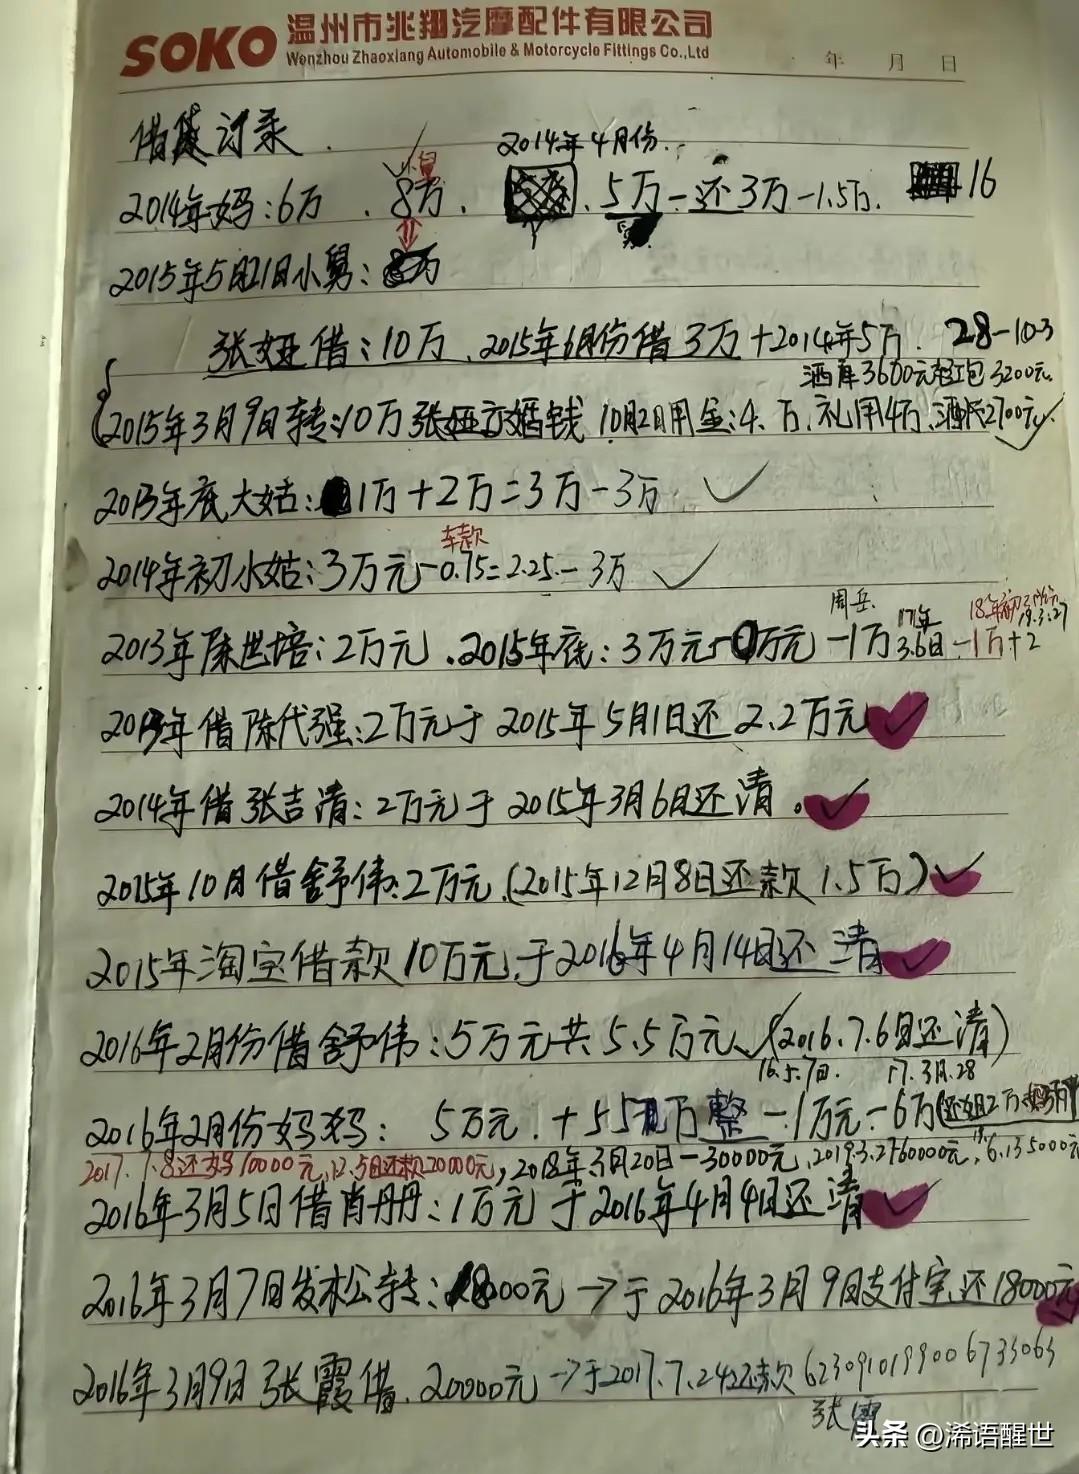 SOKO 温州市兆翔汽摩配件有限公司
Wenzhou Zhaoxiang Automobile & Motorcycle Fittings Co.,Ltd
年 月 日
借贷记录.
2014年4月份.
小舅
2014年妈:6万 . 8万. . 5万-还3万-1.5万. 16
2015年5月21日小舅:8万
张娅借:10万、2015年6月份借3万+2014年5万. 28-10-3
酒席3600元红包3200元.
2015年3月9日转:10万张娅交婚钱 10月2日用金:4.万、礼用4万、酒2700元
2013年底大姑:1万+2万=3万-3万
车款
2014年初小姑:3万元-0.75=2.25-3万
周岳. 17年 18年初 19.3.27
2013年陈世培:2万元、2015年底:3万元-万元-1万 3.6日-1万+2
2013年借陈代强:2万元于2015年5月1日还2.2万元
2014年借张吉清:2万元于2015年3月6日还清.
2015年10月借舒伟:2万元.(2015年12月8日还款1.5万)
2015年淘宝借款10万元.于2016年4月14日还清
2016年2月份借舒伟:5万元共5.5万元、(2016.7.6日还清)
16.5.7日. 17.3月.28
2016年2月份妈妈: 5万元.+5 万整-1万元-6万(还姐2万
2017.1.8还妈10000元,12.5日还款20000元,2018年3月20日-30000元、2019.3.27 60000元,6.13 5000元
2016年3月5日借肖丹丹:1万元于2016年4月4日还清
2016年3月7日发松转:18000元→于2016年3月9日支付宝还18000元
2016年3月9日张霞借.20000元→于2017.7.24还款 6230910199006733063
张霞
头条 @浠语醒世